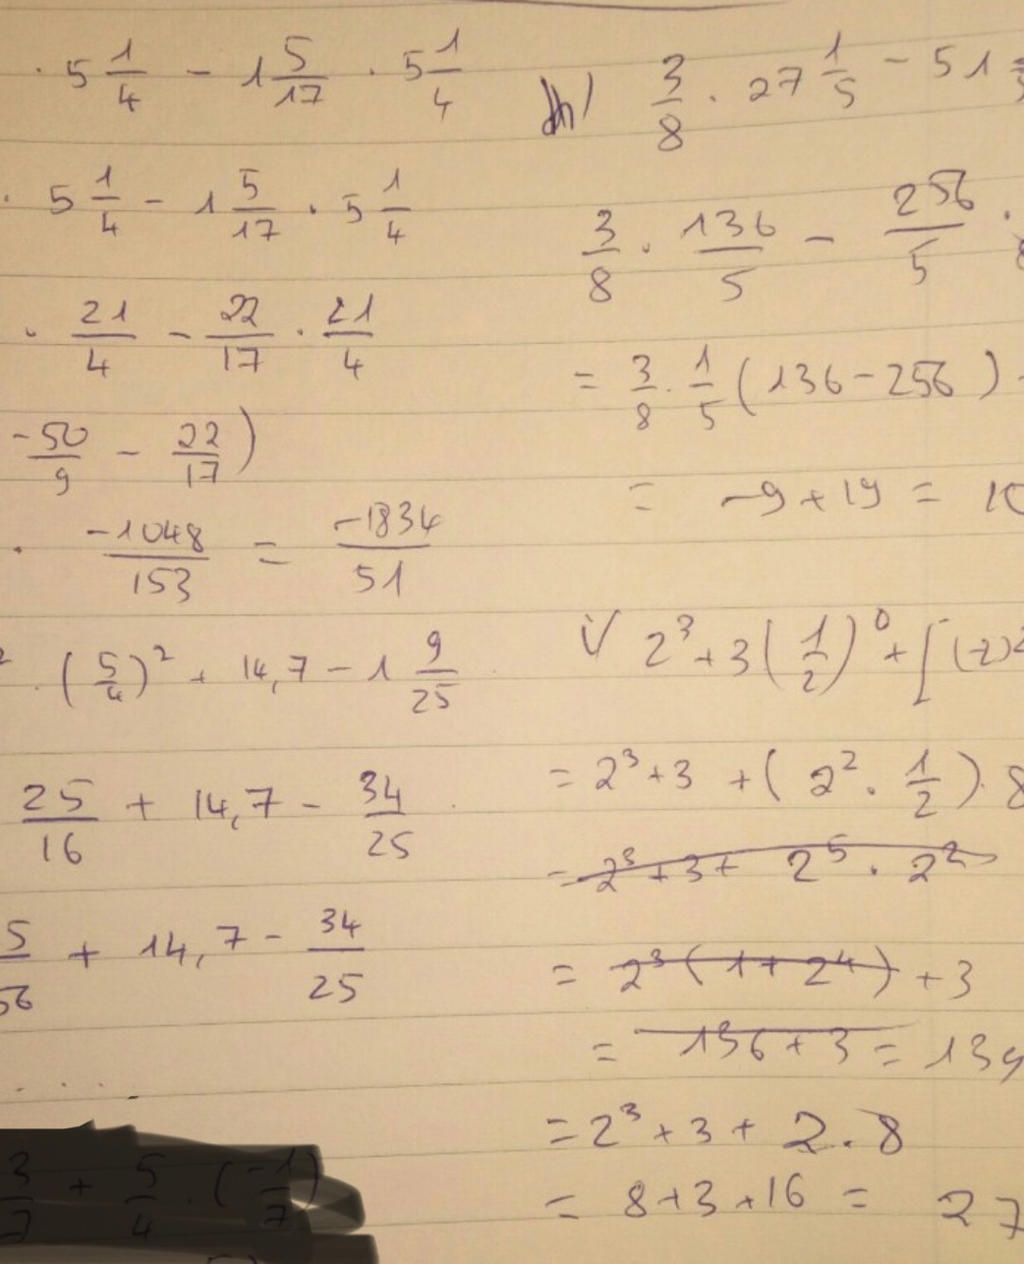 · 5 1/4 - 1 5/17 · 5 1/4
· 5 1/4 - 1 5/17 · 5 1/4
· 21/4 - 22/17 · 21/4
-50/9 - 22/17 )
· -1048/153 = -1834/51
² · (5/4)² + 14,7 - 1 9/25
25/16 + 14,7 - 34/25
5/56 + 14,7 - 34/25
. . . .
3/7 + 5/4 · (-1/7)
h) 3/8 · 27 1/5 - 51
3/8 · 136/5 - 256/5 ·
= 3/8 · 1/5 (136 - 256)
= -9 + 19 = 10
i/ 2³ + 3 (1/2)⁰ + [(-2)²
= 2³ + 3 + (2² · 1/2) · 8
= 2³ + 3 + 2⁵ · 2²
= 2³ (1 + 2⁴) + 3
= 136 + 3 = 139
= 2³ + 3 + 2 · 8
= 8 + 3 + 16 = 27